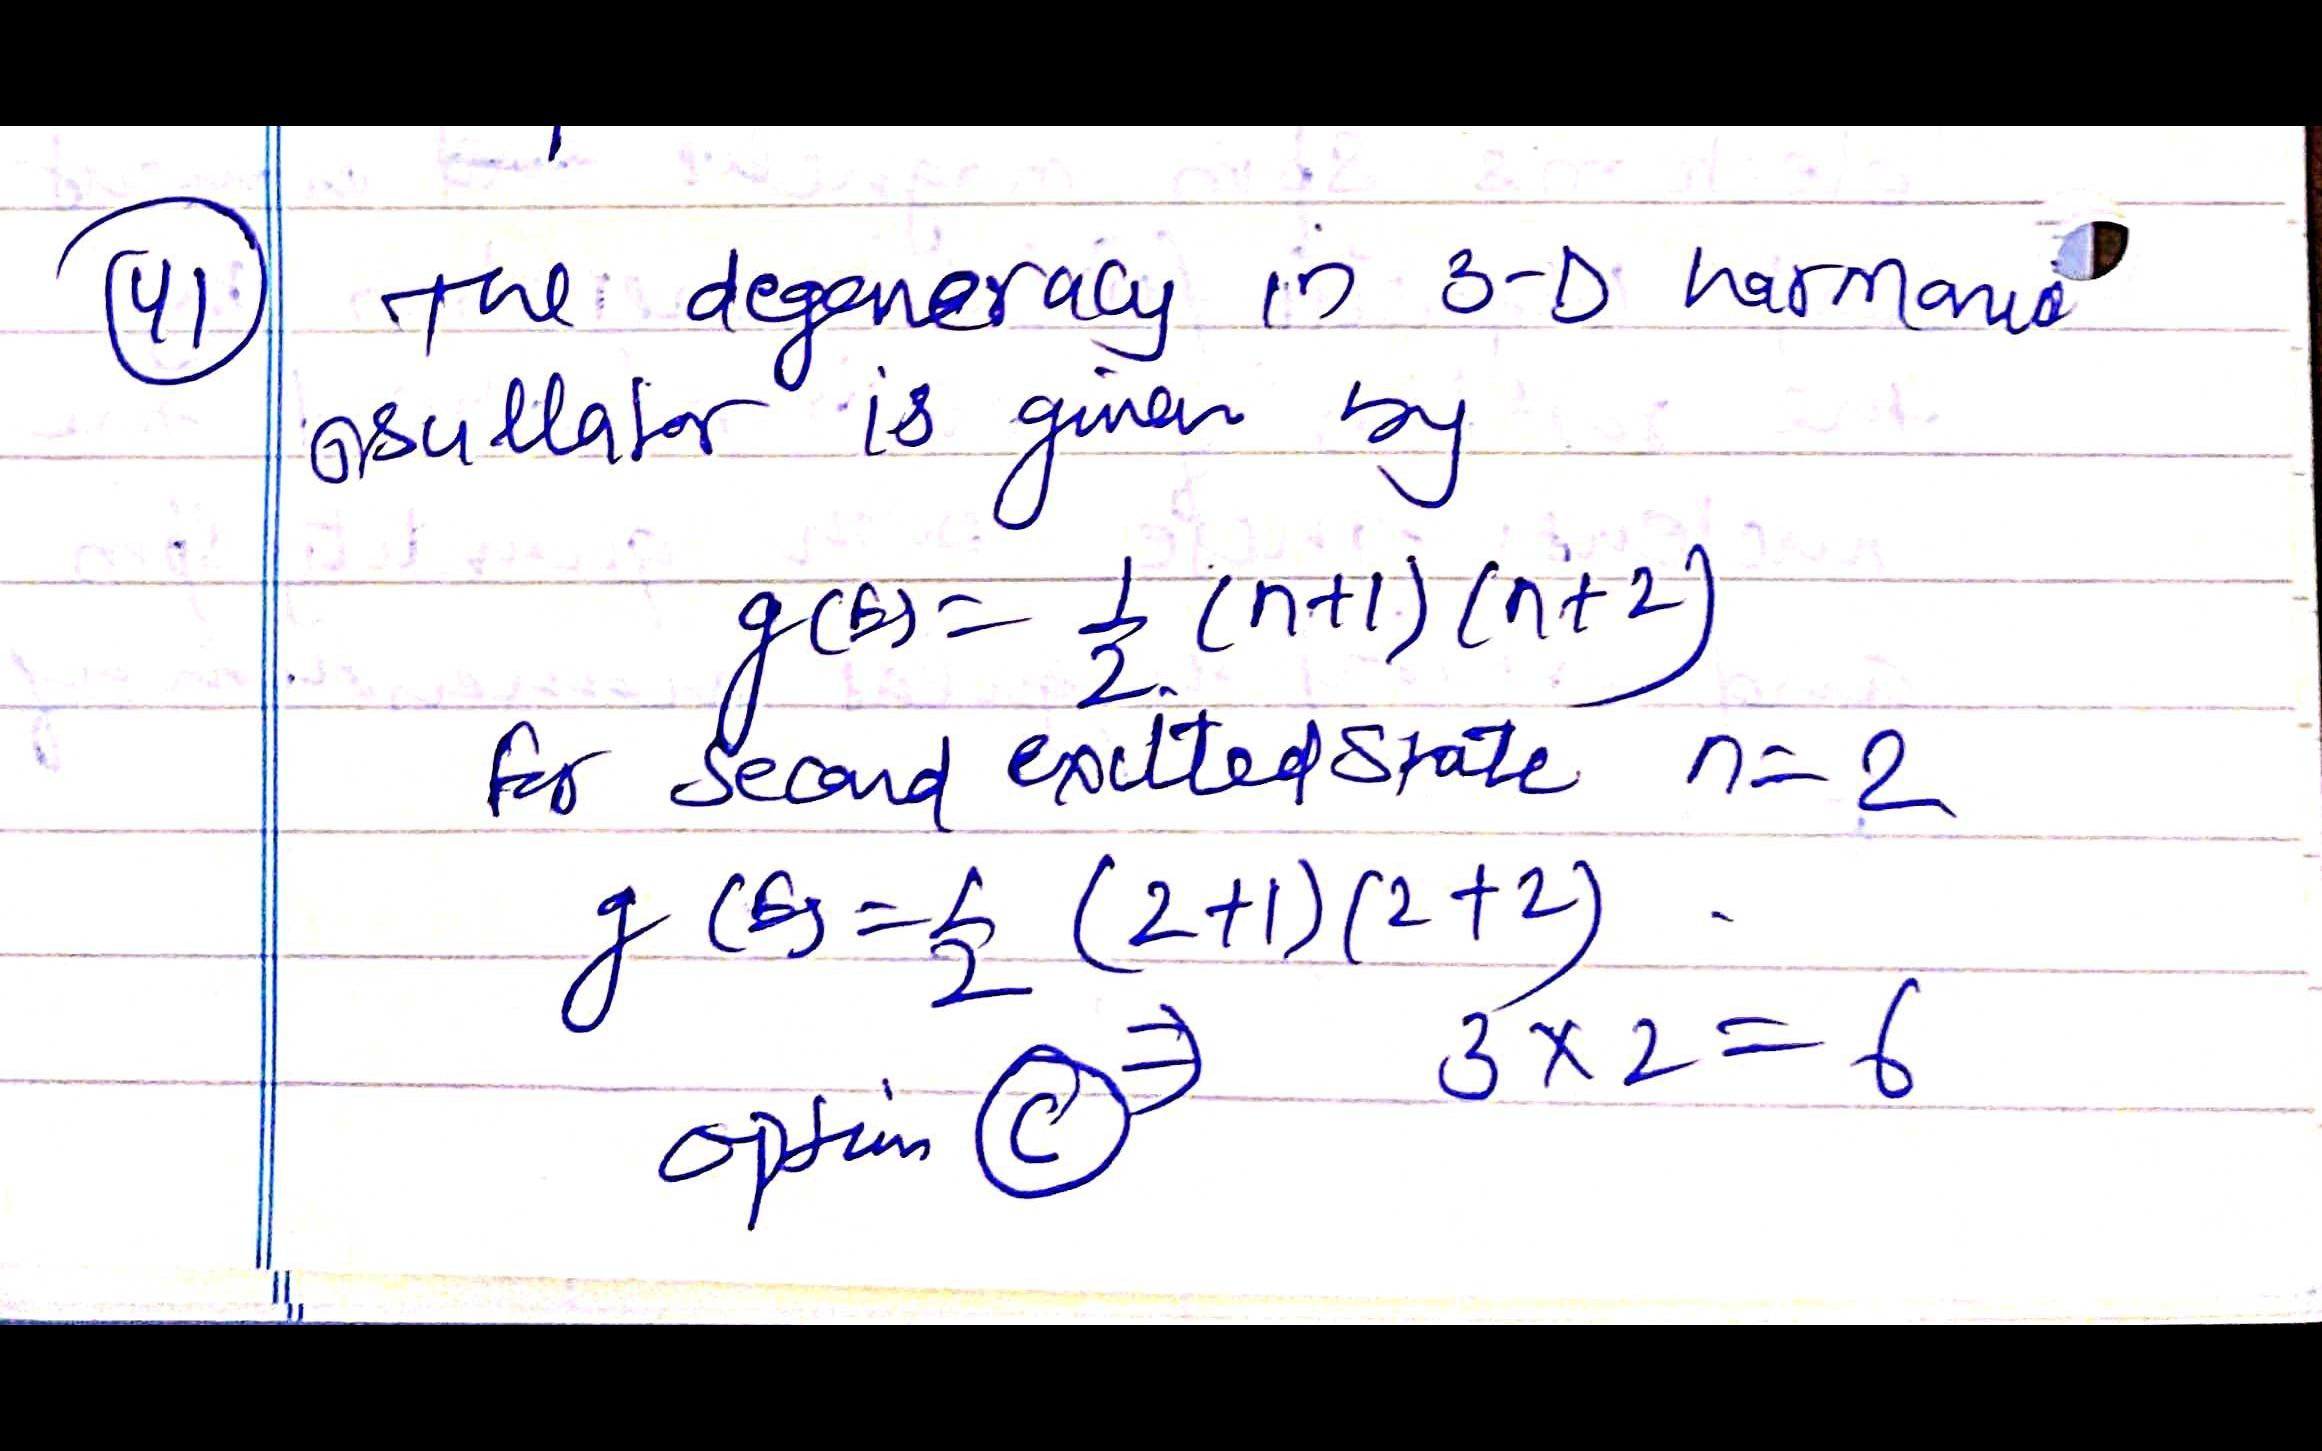 41 The degeneracy in 3-D harmonic
oscillator is given by
g(E) = 1/2 (n+1) (n+2)
for second excited state n = 2
g (E) = 1/2 (2+1) (2+2)
3 × 2 = 6
option C ⇒